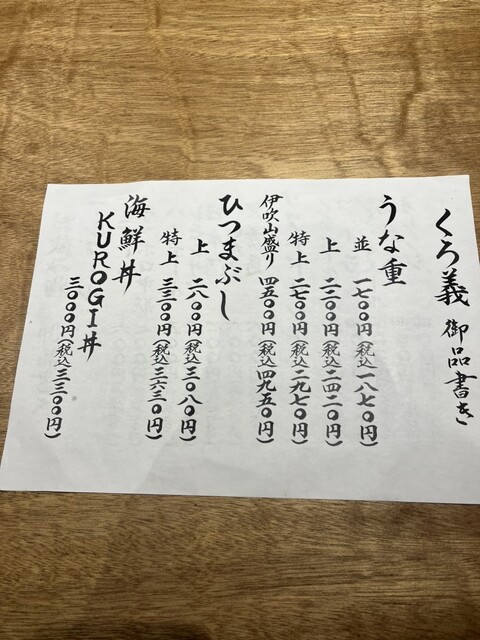 くろ義 御品書き
うな重
並 一七〇〇円(税込一八七〇円)
上 二二〇〇円(税込二四二〇円)
特上 二七〇〇円(税込二九七〇円)
伊吹山盛り 四五〇〇円(税込四九五〇円)
ひつまぶし
上 二八〇〇円(税込三〇八〇円)
特上 三三〇〇円(税込三六三〇円)
海鮮丼
KUROGI丼
三〇〇〇円(税込三三〇〇円)